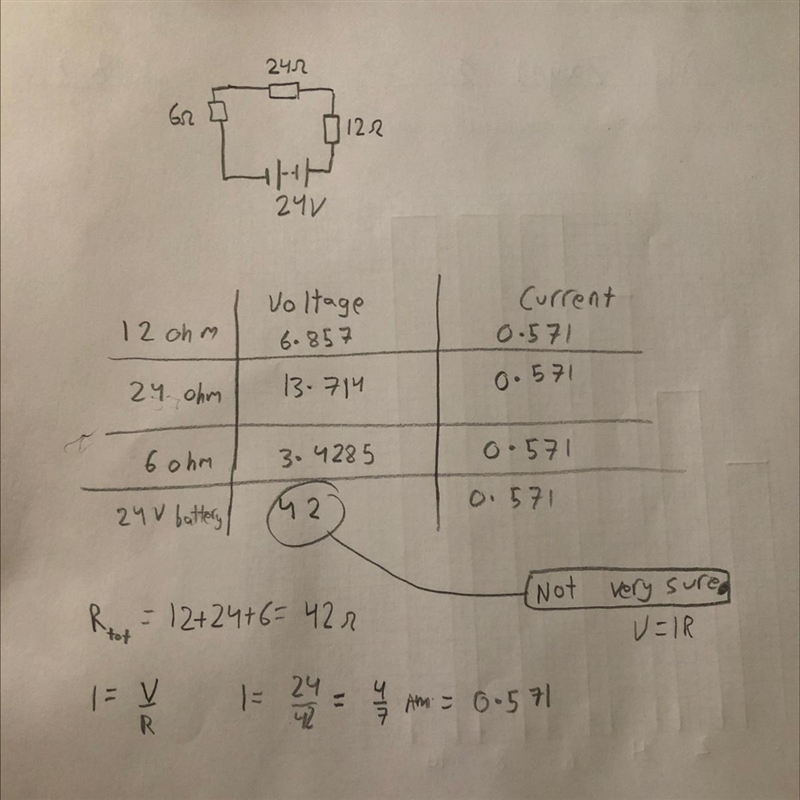 24Ω
6Ω
12Ω
24V
Voltage Current
12 ohm 6.857 0.571
24 ohm 13.714 0.571
6 ohm 3.4285 0.571
24V battery 42 0.571
Not very sure.
R_tot = 12+24+6 = 42Ω
V=IR
I = V/R I = 24/42 = 4/7 Am = 0.571